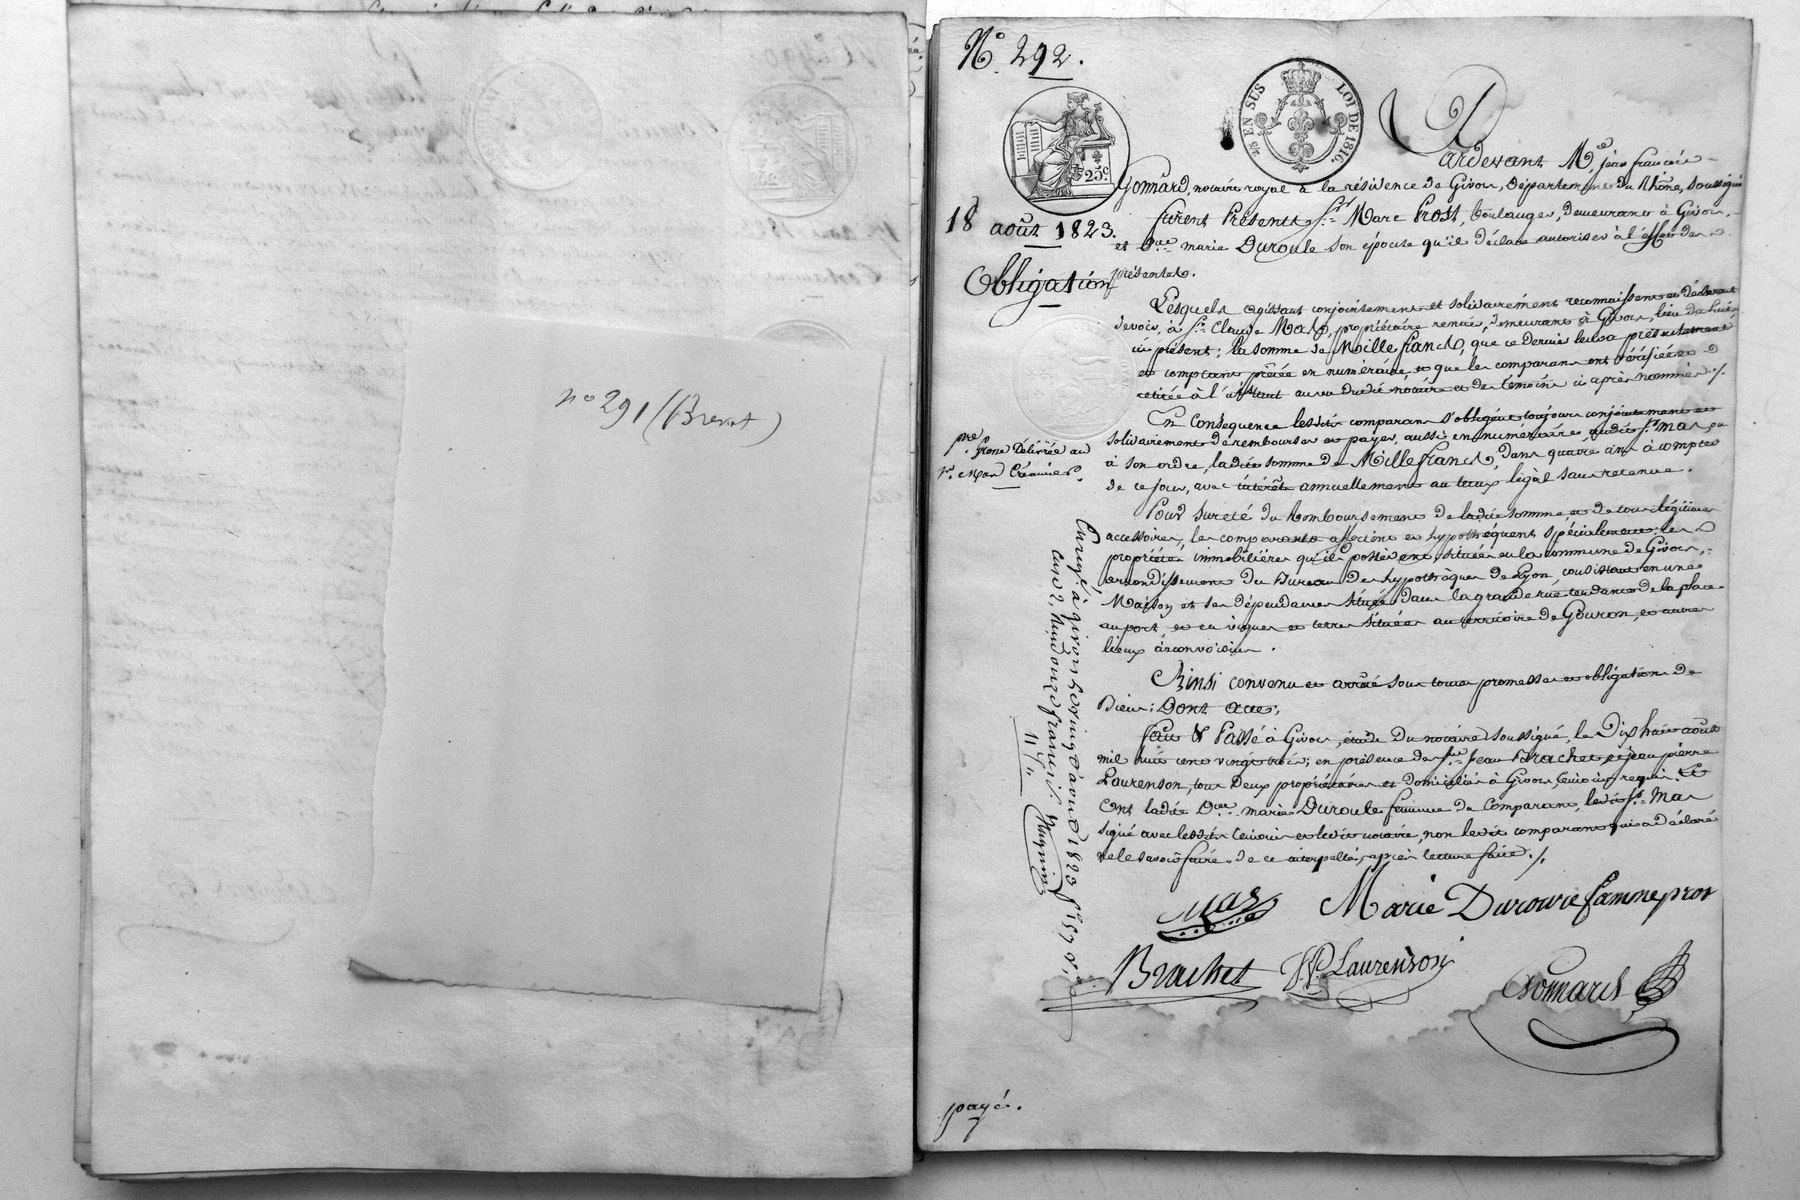 n° 291 (Brevet)
N° 292.
25 EN SUS LOI DE 1816.
25c
18 août 1823.
Obligation
Pardevant Me. jean françois
Gonnard, notaire royal à la résidence de Givors, Département du Rhône, soussigné
furent Présents Sr. Marc Prost, boulanger, demeurant à Givors,
et Dme. marie Duroule son épouse qu'il déclare autoriser à l'effet des
présentes.
Lesquels agissant conjointement et solidairement reconnaissent et déclarent
devoir, à Sr. Claude Mas, propriétaire rentier, demeurant à Givors, lieu de
ici présent; la somme de Mille francs, que ce dernier leur a présentement
et comptant prêtée en numéraire, et que les comparans ont vérifiée et
retirée à l'instant au vu dudit notaire et des témoins ci après nommés ./.
En Conséquence lesdits comparans s'obligent toujours conjointement et
solidairement de rembourser et payer, aussi en numéraire, audit Sr. Mas, ou
à son ordre, ladite somme de Mille francs, dans quatre ans à compter
de ce jour, avec intérêt annuellement au taux légal sans retenue.
Pour sureté du Remboursement de ladite somme, et de tous légitimes
accessoires, les comparants affectent et hypothéquent spécialement les
propriétés immobilières qu'ils possèdent situées en la commune de Givors,
arrondissement du Bureau des hypothèques de Lyon, consistant en une
Maison et ses dépendances située dans la grande rue tendante de la place
au port, et en vignes et terres situées au territoire de Gouron, et autres
lieux circonvoisins.
Ainsi convenu et arrêté sous toutes promesses et obligations de
Biens; Dont acte;
fait & Passé à Givors, étude du notaire soussigné, le Dix huit août
mil huit cent vingt trois; en présence de Srs. Jean Brachet et jean pierre
Laurenson, tous deux propriétaires et domiciliés à Givors, témoins requis. Et
Ont ladite Dme. marie Duroule femme du Comparant, ledit Sr. Mas
signé avec lesdits témoins et ledit notaire, non ledit comparant qui a déclaré
ne le savoir faire de ce interpellé, après lecture faite ./.
pre. Grosse Délivrée au
Sr. Mas Créancier.
Enregt. à givors le vingt d'août 1823 fo. 57 Vo.
Reçu
11 "/"
Mas
Marie Duroure famme prot
Brachet
J.P. Laurenson
Gonnard
payé.